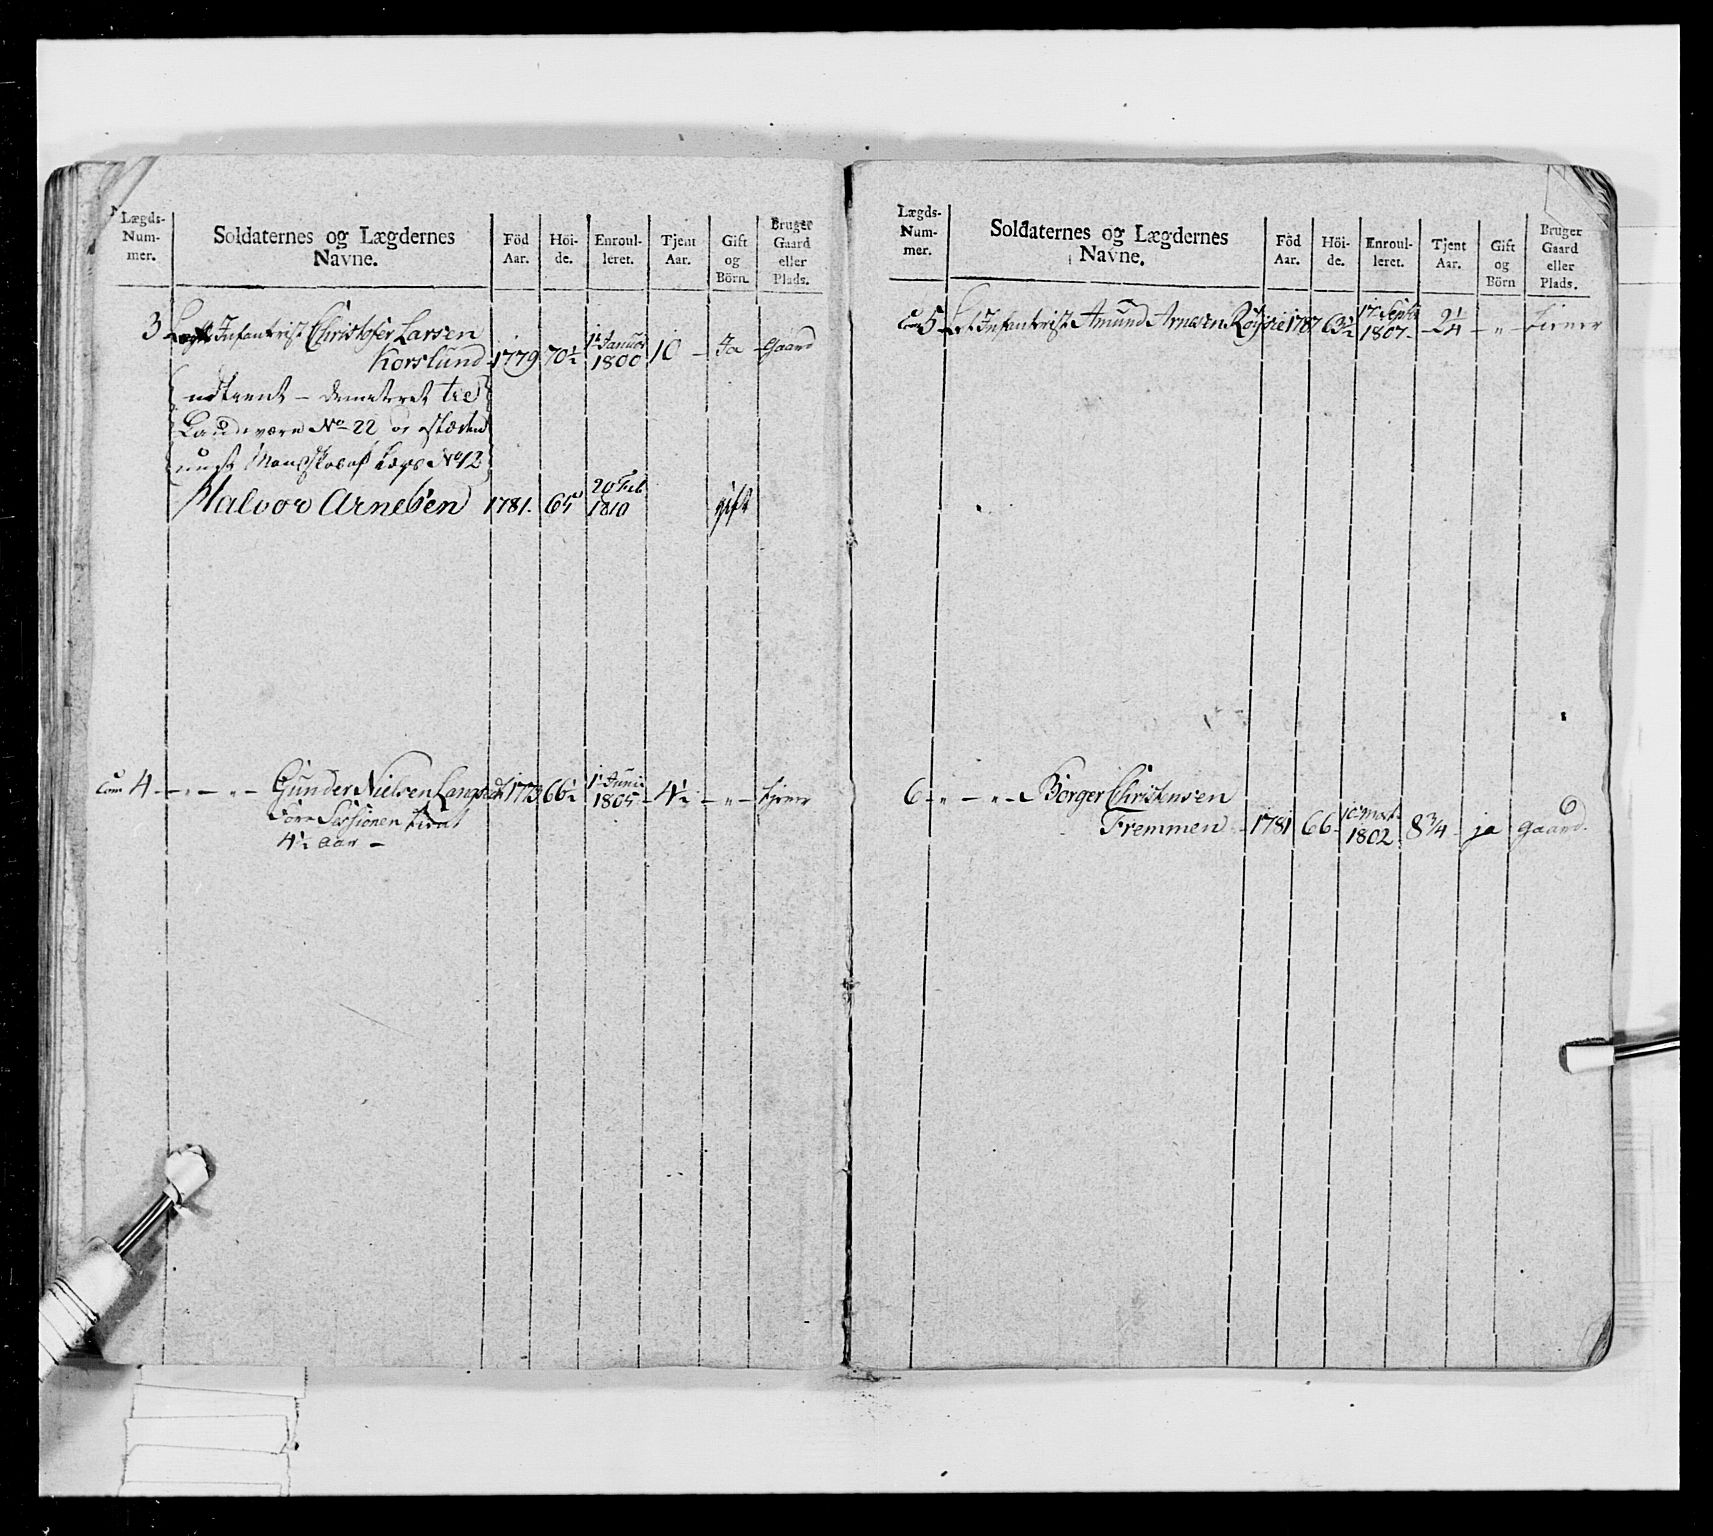 Lægds-
Num-
mer.
Soldaternes og Lægdernes
Navne.
Föd
Aar.
Höi-
de.
Enroul-
leret.
Tjent
Aar.
Gift
og
Börn.
Bruger
Gaard
eller
Plads.
3 Infanterist Christofer Larsen
Korslund 1779 70½ 1 Januar 1800 10 - Ja Gaard
udtient -
Landeværn No 22 og
No 12
Halvor Arnesen 1781. 65 20 Feb 1810 gift
4 - " - " - Gunder Nielsen 1773 66½ 1 Junii 1805 - 4½ - " - tiener
för Sessionen tient
4½ aar -
Lægds-
Num-
mer.
Soldaternes og Lægdernes
Navne.
Föd
Aar.
Höi-
de.
Enroul-
leret.
Tjent
Aar.
Gift
og
Börn
Bruger
Gaard
eller
Plads.
5 Infanterist Amund Arnesen 1787 63½ 17 Septb 1807 - 2¼ - " - tiener
6 - " - " - Börger Christensen
Fremmen - 1781 66 - 1802 8¾ - ja gaard.